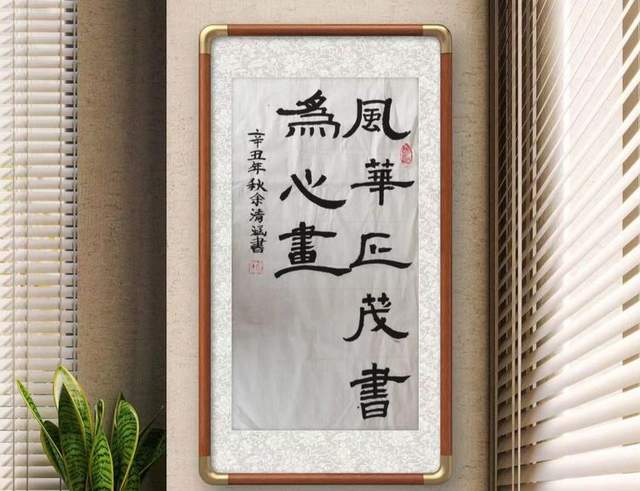 風華正茂書
為心畫
辛丑年秋余清涵書